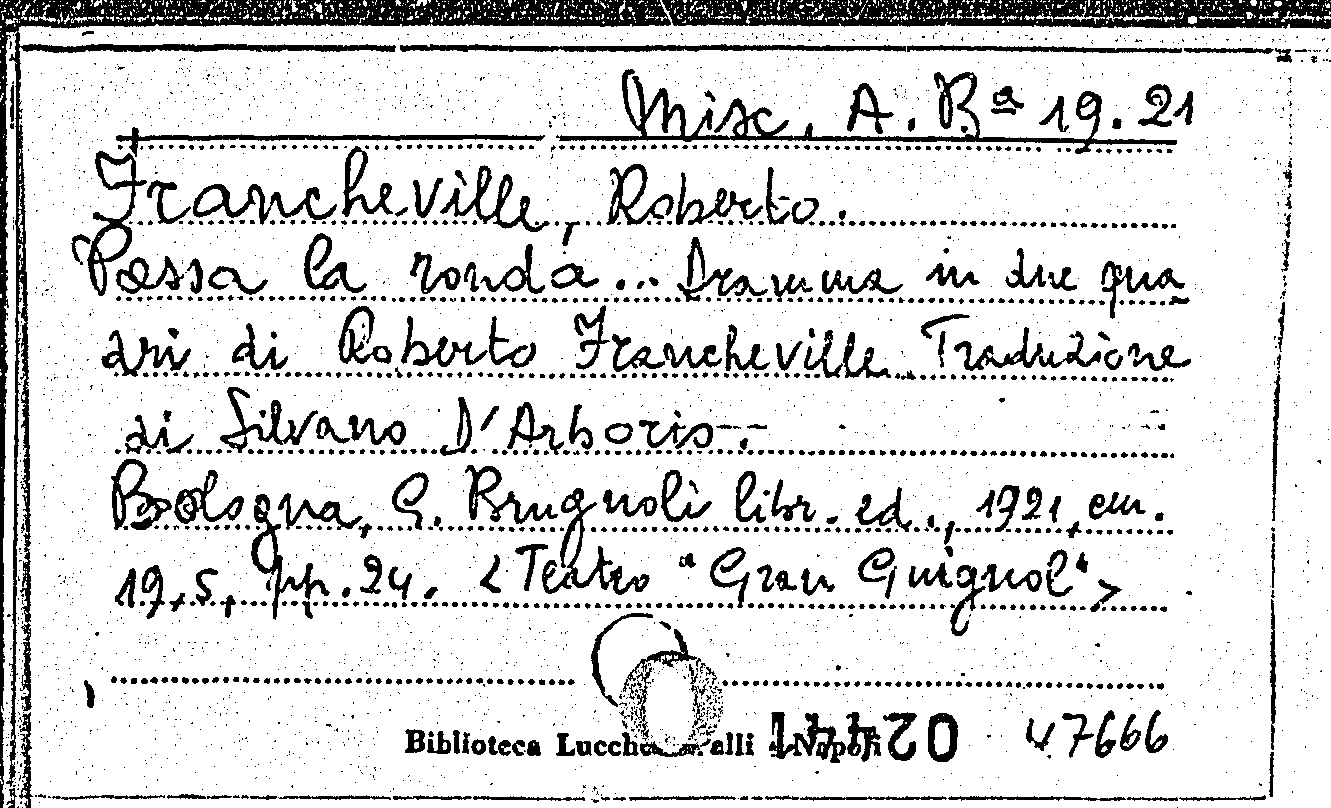 Misc. A. Bª 19.21
Francheville, Roberto.
Passa la ronda... Dramma in due qua
dri di Roberto Francheville. Traduzione
di Silvano D'Arboris.-
Bologna, G. Brugnoli libr. ed., 1921, cm.
19,5, pp. 24. <Teatro "Gran Guignol">
Biblioteca Napoli 47666